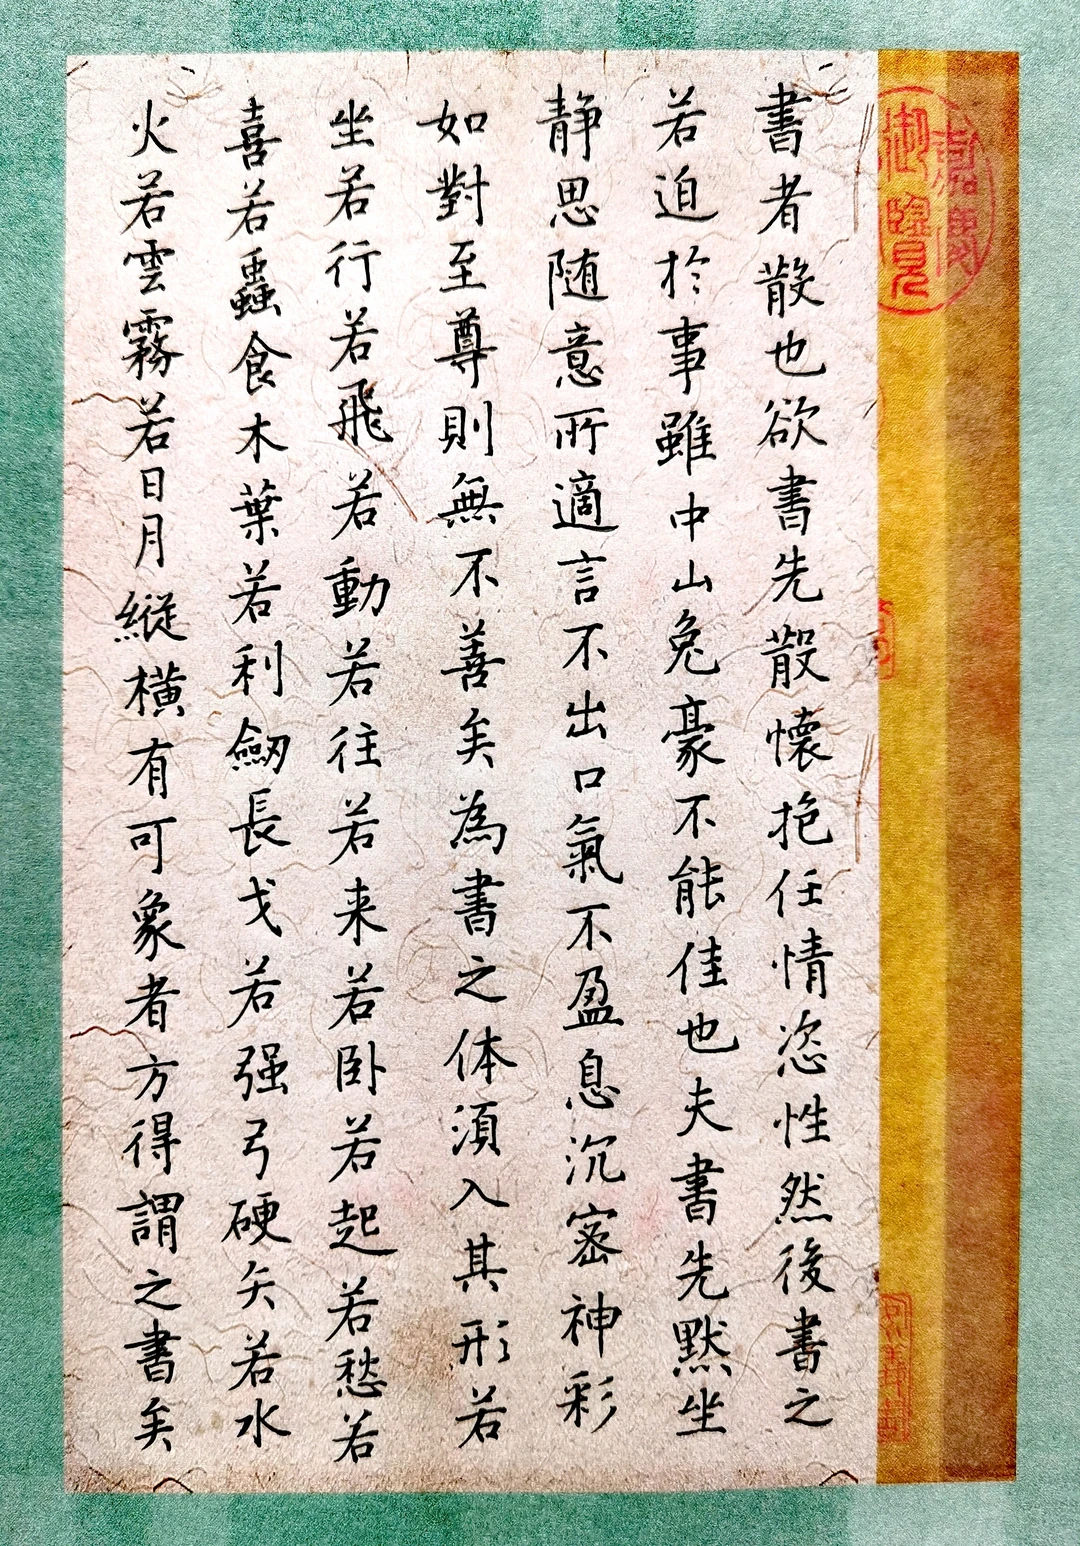 嘉慶御覽
書者散也欲書先散懷抱任情恣性然後書之
若迫於事雖中山兔豪不能佳也夫書先默坐
静思随意所適言不出口氣不盈息沉密神彩
如對至尊則無不善矣為書之体須入其形若
坐若行若飛若動若往若来若卧若起若愁若
喜若蟲食木葉若利劒長戈若强弓硬矢若水
火若雲霧若日月縱橫有可象者方得謂之書矣